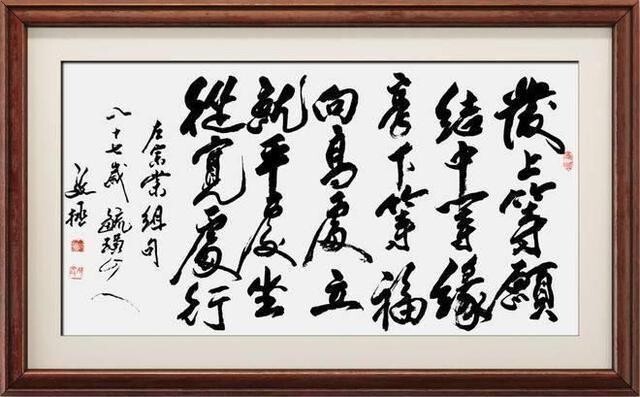 發上等願
結中等緣
享下等福
向高處立
就平處坐
從寬處行
左宗棠組句
八十七歲